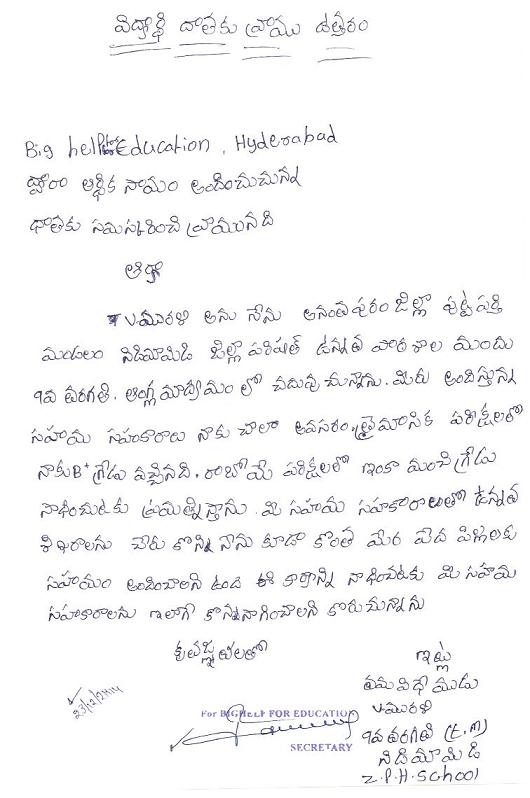 విద్యార్థి దాతకు వ్రాము ఉత్తరం
Big help for Education, Hyderabad
ద్వారా ఆర్థిక సాయం అందించుచున్న
దాతకు నమస్కరించి వ్రాయునది
ఆర్యా
V.మురళి అను నేను అనంతపురం జిల్లా పుట్టపర్తి
మండలం నిడిమామిడి జిల్లా పరిషత్ ఉన్నత పాఠశాల యందు
9వ తరగతి, ఆంగ్ల మాధ్యమం లో చదువుచున్నాను. మీరు అందిస్తున్న
సహాయ సహకారాలు నాకు చాలా అవసరం. త్రైమాసిక పరీక్షలలో
నాకు B+ గ్రేడు వచ్చినది. రాబోయే పరీక్షలలో ఇంకా మంచి గ్రేడు
సాధించుటకు ప్రయత్నిస్తాను. మీ సహాయ సహకారాలతో ఉన్నత
శిఖరాలను చేరుకొన్ని నాను కూడా కొంత మేర పేద పిల్లలకు
సహాయం అందించాలని ఉంది ఈ కార్యాన్ని సాధించుటకు మీ సహాయ
సహకారాలను ఇలాగే కొనసాగించాలని కోరుచున్నాను
కృతజ్ఞతలతో
ఇట్లు
తమ విధేయుడు
V.మురళి
9వ తరగతి (E.M)
నిడిమామిడి
Z.P.H.School
23/12/2014
For BIGHELP FOR EDUCATION
SECRETARY